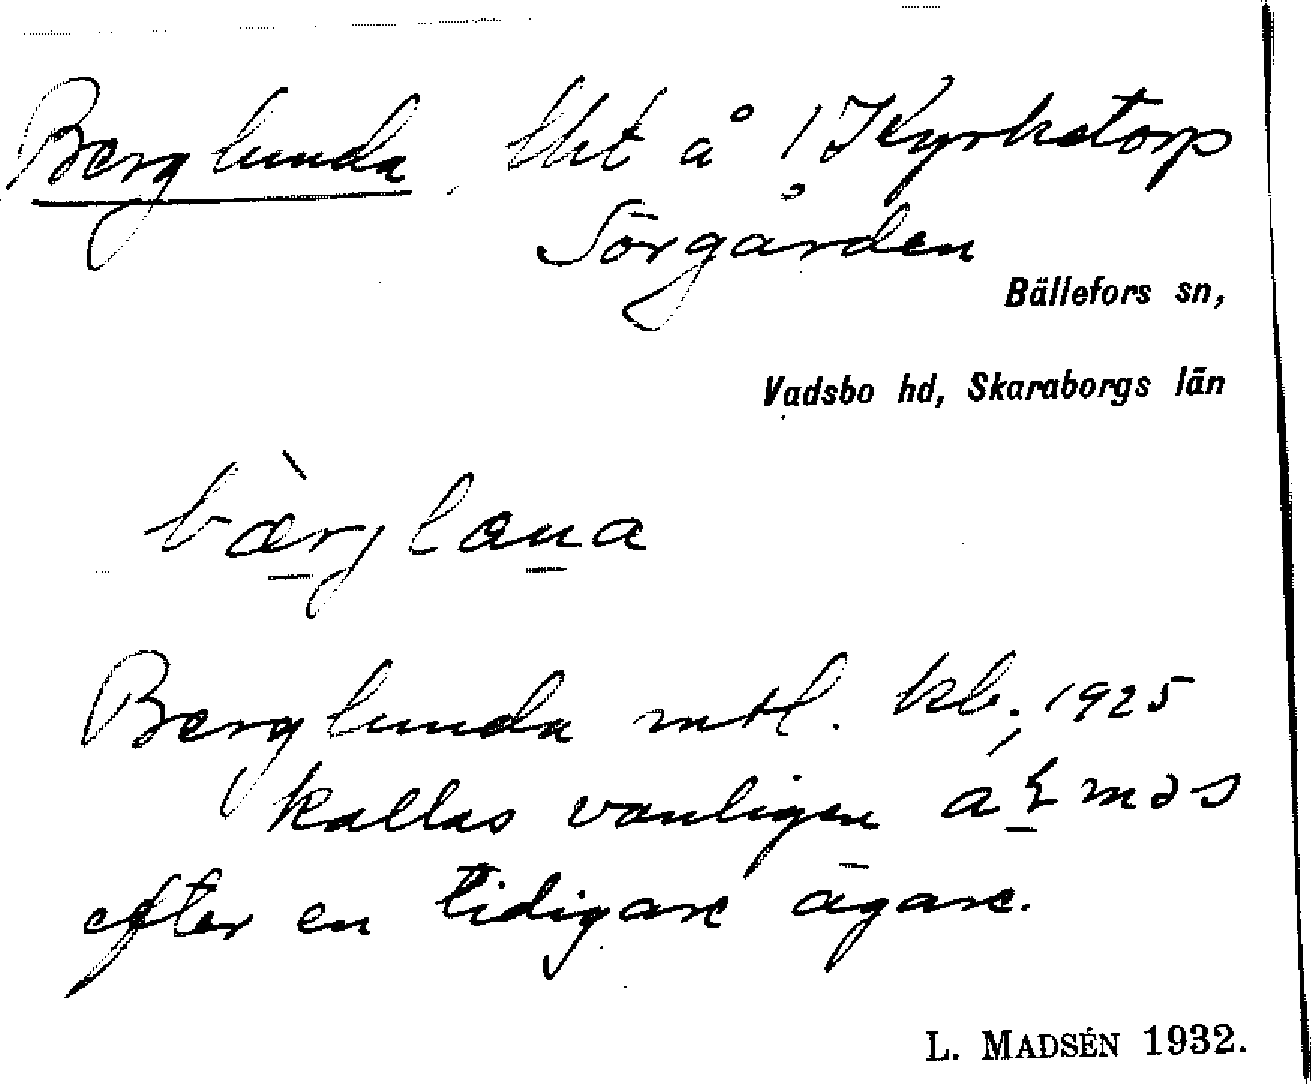 Berglunda, lht å 1 Kyrketorp
Sörgården
Bällefors sn,
Vadsbo hd, Skaraborgs län
bæ̀rglana
Berglunda mtl. kb. 1925
kallas vanligen
efter en tidigare ägare.
L. MADSÉN 1932.